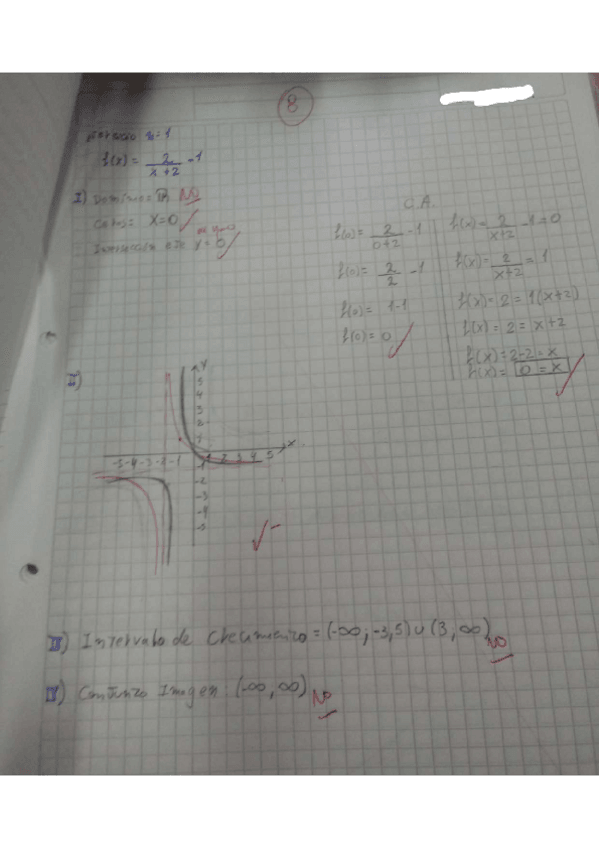 8
n=1
f(x) = 2/(x+2) -1
I) Dominio = ℝ NO
Ceros: X=0 ✓
Intersección y=0 ✓
C.A.
f(0)= 2/(0+2) -1
f(0)= 2/2 -1
f(0)= 1-1
f(0)= 0 ✓
f(x)= 2/(x+2) -1=0
f(x)= 2/(x+2) = 1
f(x)= 2 = 1(x+2)
f(x)= 2 = x+2
f(x)= 2-2=x
f(x)= 0 = x ✓
II)
Y
5
4
3
2
1
X
-5 -4 -3 -2 -1
1 2 3 4 5
-1
-2
-3
-4
-5
√-
III) Intervalo de Crecimiento = (-∞; -3,5) ∪ (3, ∞) NO
Conjunto Imagen: (-∞, ∞) NO